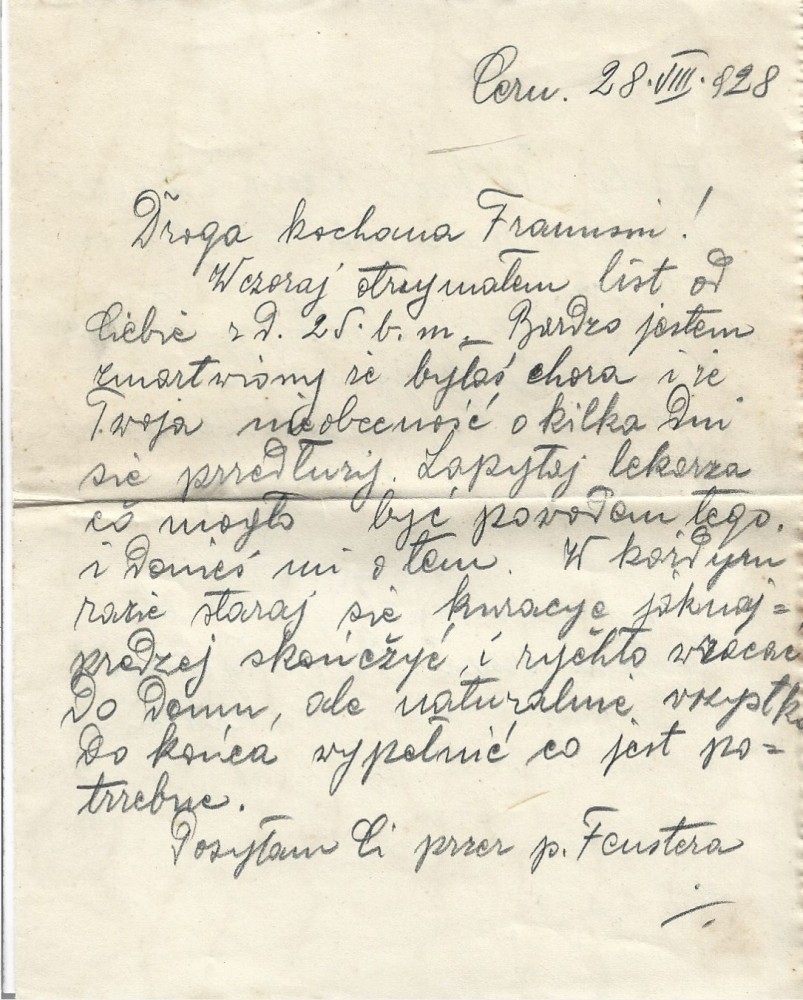 Czern. 28.VIII.928
Droga kochana Franusni!
Wczoraj otrzymałem list od
Ciebie z d. 25. b. m. Bardzo jestem
zmartwiony że byłaś chora i że
Twoja nieobecność o kilka dni
się przedłuży. Zapytaj lekarza
co mogło być powodem tego,
i donieś mi o tem. W każdym
razie staraj się kuracye jaknaj=
prędzej skończyć, i rychło wracać
do domu, ale naturalnie wszystko
do końca wypełnić co jest po=
trzebne.
Posyłam Ci przez p. Feustera